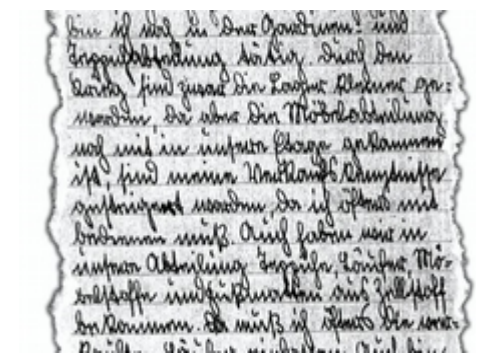 bin ich noch in der Gardinen- und
Teppichabteilung tätig. Durch den
Krieg sind zwar die Lager kleiner ge-
worden, da aber die Möbelabteilung
noch mit in unsere Etage gekommen
ist, sind meine Verkaufskenntnisse
gesteigert worden, da ich öfters mit
bedienen muß. Auch haben wir in
unsere Abteilung Teppiche, Läufer, Mö-
belstoffe und Fußmatten aus Zellstoff
bekommen. Da muß ich öfters die ver-
kauften Läufer Auch bin